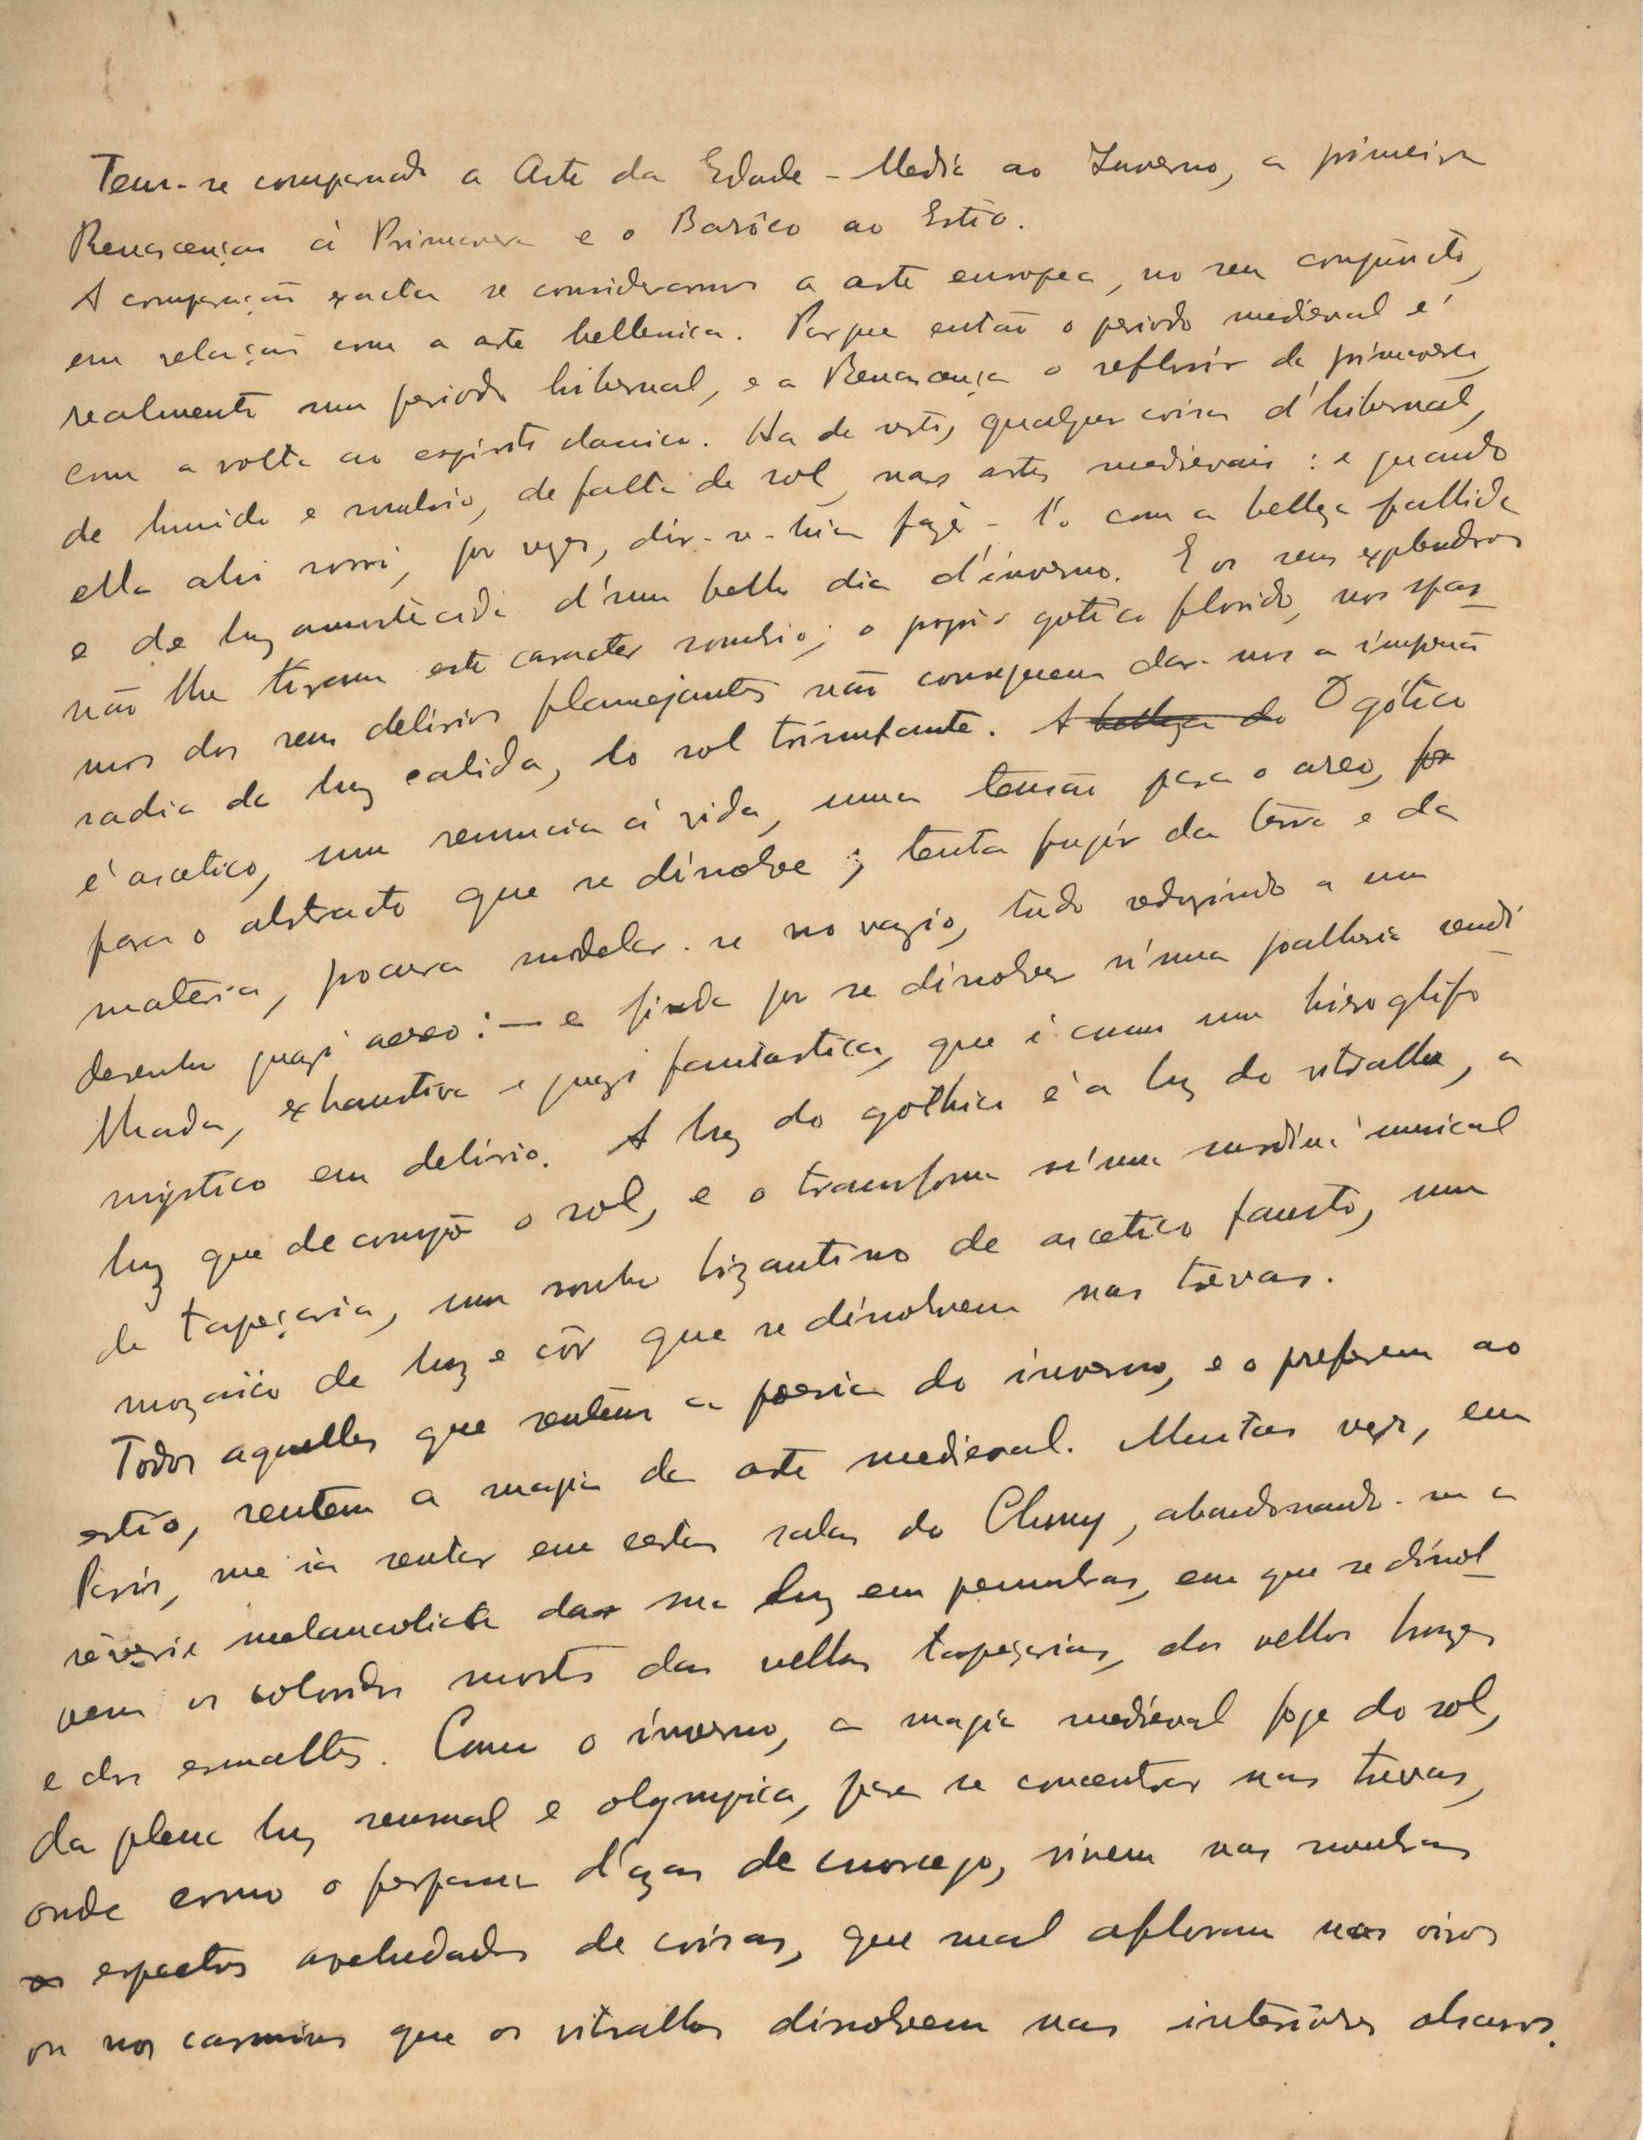 Tem-se comparado a Arte da Edade-Media ao Inverno, a primeira
Renascença á Primavera e o Barôco ao Estio.
A comparação exacta se considerarmos a arte europea, no seu conjuncto,
em relação com a arte hellenica. Porque então o periodo medieval é
realmente um periodo hibernal, e a Renascença o reflorir da primavera,
com a volta ao espirito classico. Ha de resto, qualquer coisa d'hibernal,
de humido e sombrio, de falta de sol, nas artes medievais: e quando
ella ahi sorri, por vezes, dir-se-hia fazê-l'o com a belleza pallida
e de luz amortecida d'um bello dia d'inverno. E os seus explendores
não lhe tiram este caracter sombrio; o proprio gotico florido, nos spas_
mos dos seus delirios flamejantes não conseguem dar-nos a impressão
radia da luz calida, do sol triumfante. A belleza do O gótico
é ascetico, uma renuncia á vida, uma tensão para o aereo, por
para o abstracto que se dissolve; tenta fugir da terra e da
materia, procura modelar-se no vazio, tudo reduzindo a um
desenho quazi aereo:— e finda por se dissolver n'uma joalheria rendi_
lhada, exhaustiva e quazi fantastica, que é como um hieroglifo
mystico em delirio. A luz do gothico é a luz do vitralho, a
luz que decompõe o sol, e o transforma n'uma surdina musical
de tapeçaria, um sonho bizantino de ascetico fausto, um
mozaico de luz e côr que se dissolvem nas trevas.
Todos aquelles que sentem a poesia do inverno, e o preferem ao
estio, sentem a magia da arte medieval. Muitas vezes, em
Paris, me ia sentar em certas salas do Cluny, abandonando-me a
rêverie melancolica da sua luz em penumbras, em que se dissol_
vem os coloridos mortos das velhas tapeçarias, dos velhos bronzes
e dos esmaltes. Como o inverno, a magia medieval foje do sol,
da plena luz sensual e olympica, para se concentrar nas trevas,
onde como o perpassar d'azas de morcego, vivem nas sombras
os espectros avelludados de coisas, que mal afloram nos oiros
ou nos carmins que os vitralhos dissolvem nos interiores obscuros.